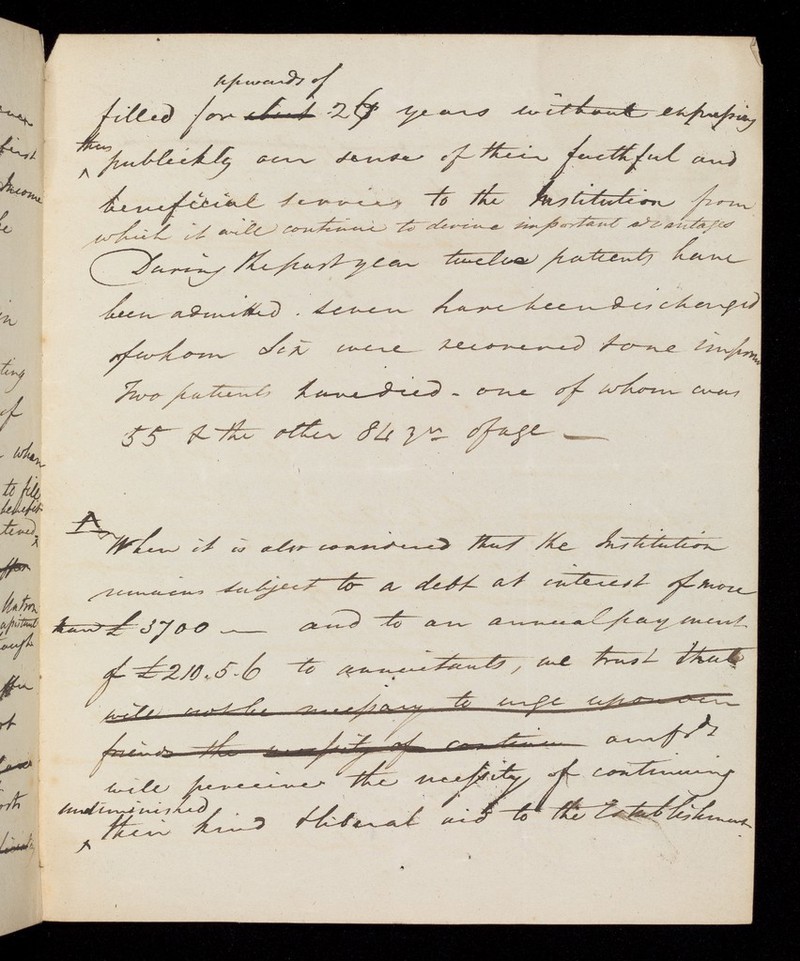 upwards of
filled for about 26 years without expressing
thus
publickly our sense of their faithful and
beneficial services to the Institution from
which it will continue to derive important advantages
During the past year twelve patients have
been admitted. seven have been discharged
of whom Six were recovered & one improved
Two patients have died - one of whom was
55 & the other 84 yrs of age —
When it is also considered that the Institution
remains subject to a debt at interest of more
than £3700 — and to an annual payment
of £210.5.6 to annuitants, we trust that
will not be necessary to urge upon our
friends the necessity of continu our frds
will perceive the necessity of continuing
undiminished
their kind & liberal aid to the Establishment.